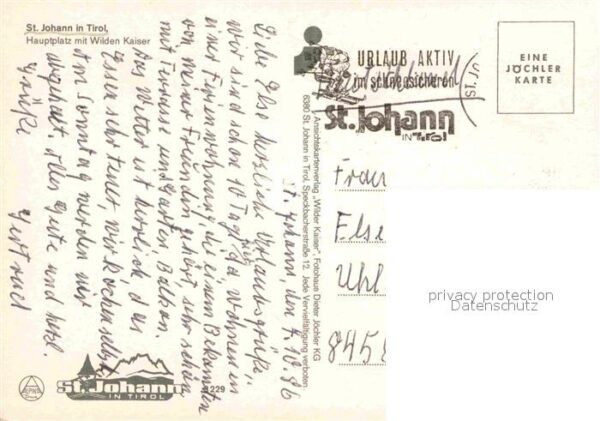 St. Johann in Tirol,
Hauptplatz mit Wilden Kaiser
St. Johann, den 4.10.86
Liebe Else herzliche Urlaubsgrüße.
wir sind schon 10 Tage hier da wohnen in
einer Ferienwohnung die einem Bekannten
von meiner Freundin gehört, sehr schön
mit Terrasse und Garten, Balkon.
Das Wetter ist herrlich, das
Essen sehr teuer, wir kochen selbst
Am Sonntag werden wir
abgeholt. Alles Gute und herzl.
Grüße Gertrud
Ansichtskartenverlag „Wilder Kaiser“, Fotohaus Dieter Jöchler KG
6380 St. Johann in Tirol, Speckbacherstraße 12. Jede Vervielfältigung verboten.
URLAUB AKTIV
im schneesicheren
St. Johann
IN TIROL
ST. JO
EINE
JÖCHLER
KARTE
Frau
Else
Uhl
845
privacy protection
Datenschutz
St. Johann
IN TIROL
229